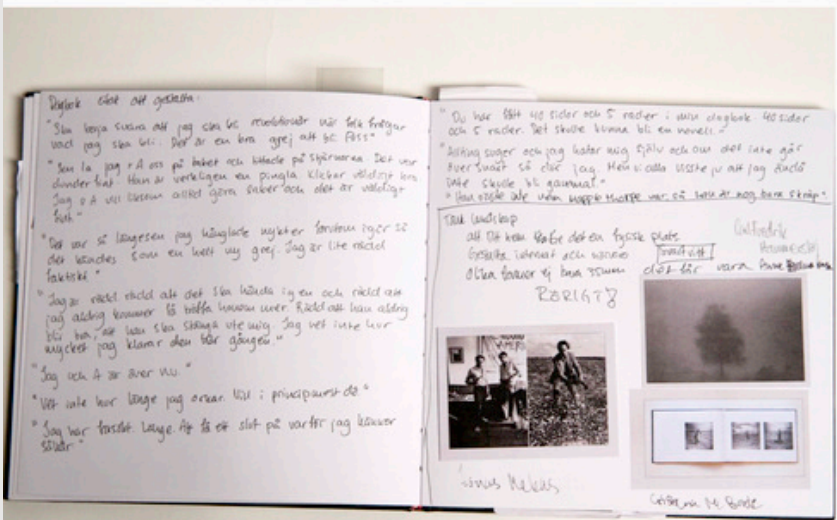 Dagbok citat att gestalta:
"Ska börja svara att jag ska bli revolutionär när folk frågar
vad jag ska bli. Det är en bra grej att bli. Fäss"
"Sen la jag & A oss på taket och tittade på stjärnorna. Det var
dunder fint. Han är verkligen en pingla klickar väldigt bra
Jag & A vill liksom alltid göra saker och det är väldigt
kul."
"Det var så längesen jag hånglade nykter förutom igår så
det kändes som en helt ny grej. Jag är lite rädd
faktiskt."
"Jag är rädd rädd att det ska hända igen och rädd att
jag aldrig kommer få träffa honom mer. Rädd att han aldrig
blir bra, att han ska stänga ute mig. Jag vet inte hur
mycket jag klarar den här gången."
"Jag och A är över nu."
"Vet inte hur länge jag orkar. Vill i principmest dö."
"Jag har försökt. Länge. Att få ett slut på varför jag känner
såhär."
"Du har fått 40 sidor och 5 rader i min dagbok. 40 sidor
och 5 rader. Det skulle kunna bli en novell."
"Allting suger och jag hatar mig själv och om det inte går
över snart så dör jag. Men ni alla visste ju att jag ändå
inte skulle bli gammal."
"Han visste inte vem Mapplethorpe var, så han är nog bara skräp".
Tänk landskap
att ditt hem
det en fysisk plats
Gestalta internat och
Svartvitt
olika former ej bara samma
det får vara
RÖRIGT
Jonas Mekas